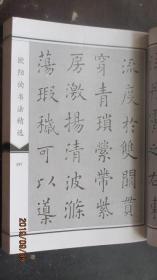 流度於雙闕貫
穿青瑣縈帶紫
房激揚清波滌
蕩瑕穢可以導
欧阳询书法精选
2018/09/01